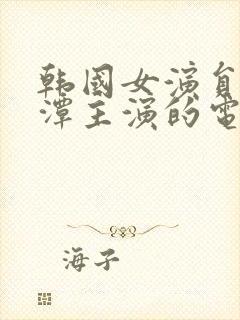 韩國女演員
潭主演的電
海子